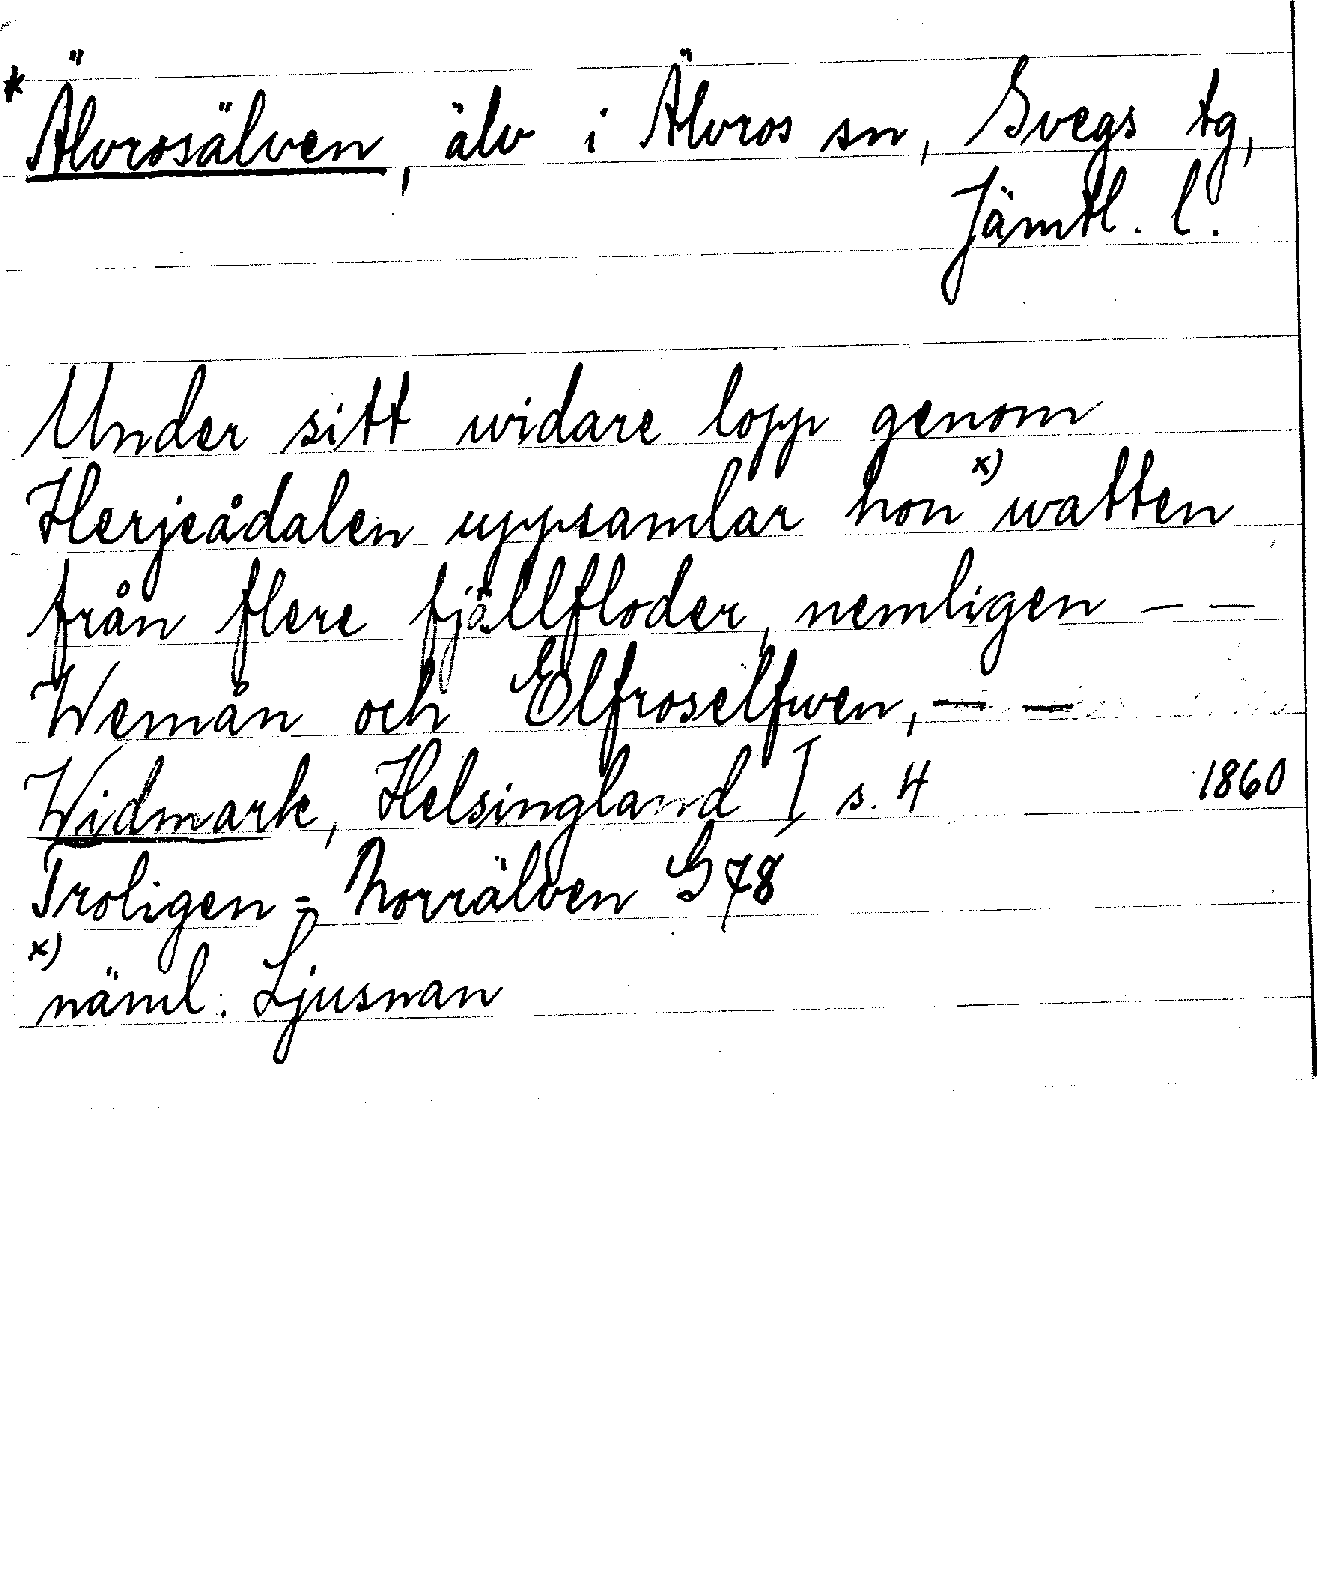 * Älvrosälven, älv i Älvros sn, Svegs tg,
Jämtl. l.
Under sitt widare lopp genom
Herjeådalen uppsamlar hon x) watten
från flere fjällfloder, nemligen — —
Wemån och Elfroselfwen, — —
Widmark, Helsingland I s. 4 1860
Troligen = Norrälven G 78
x)
näml. Ljusnan